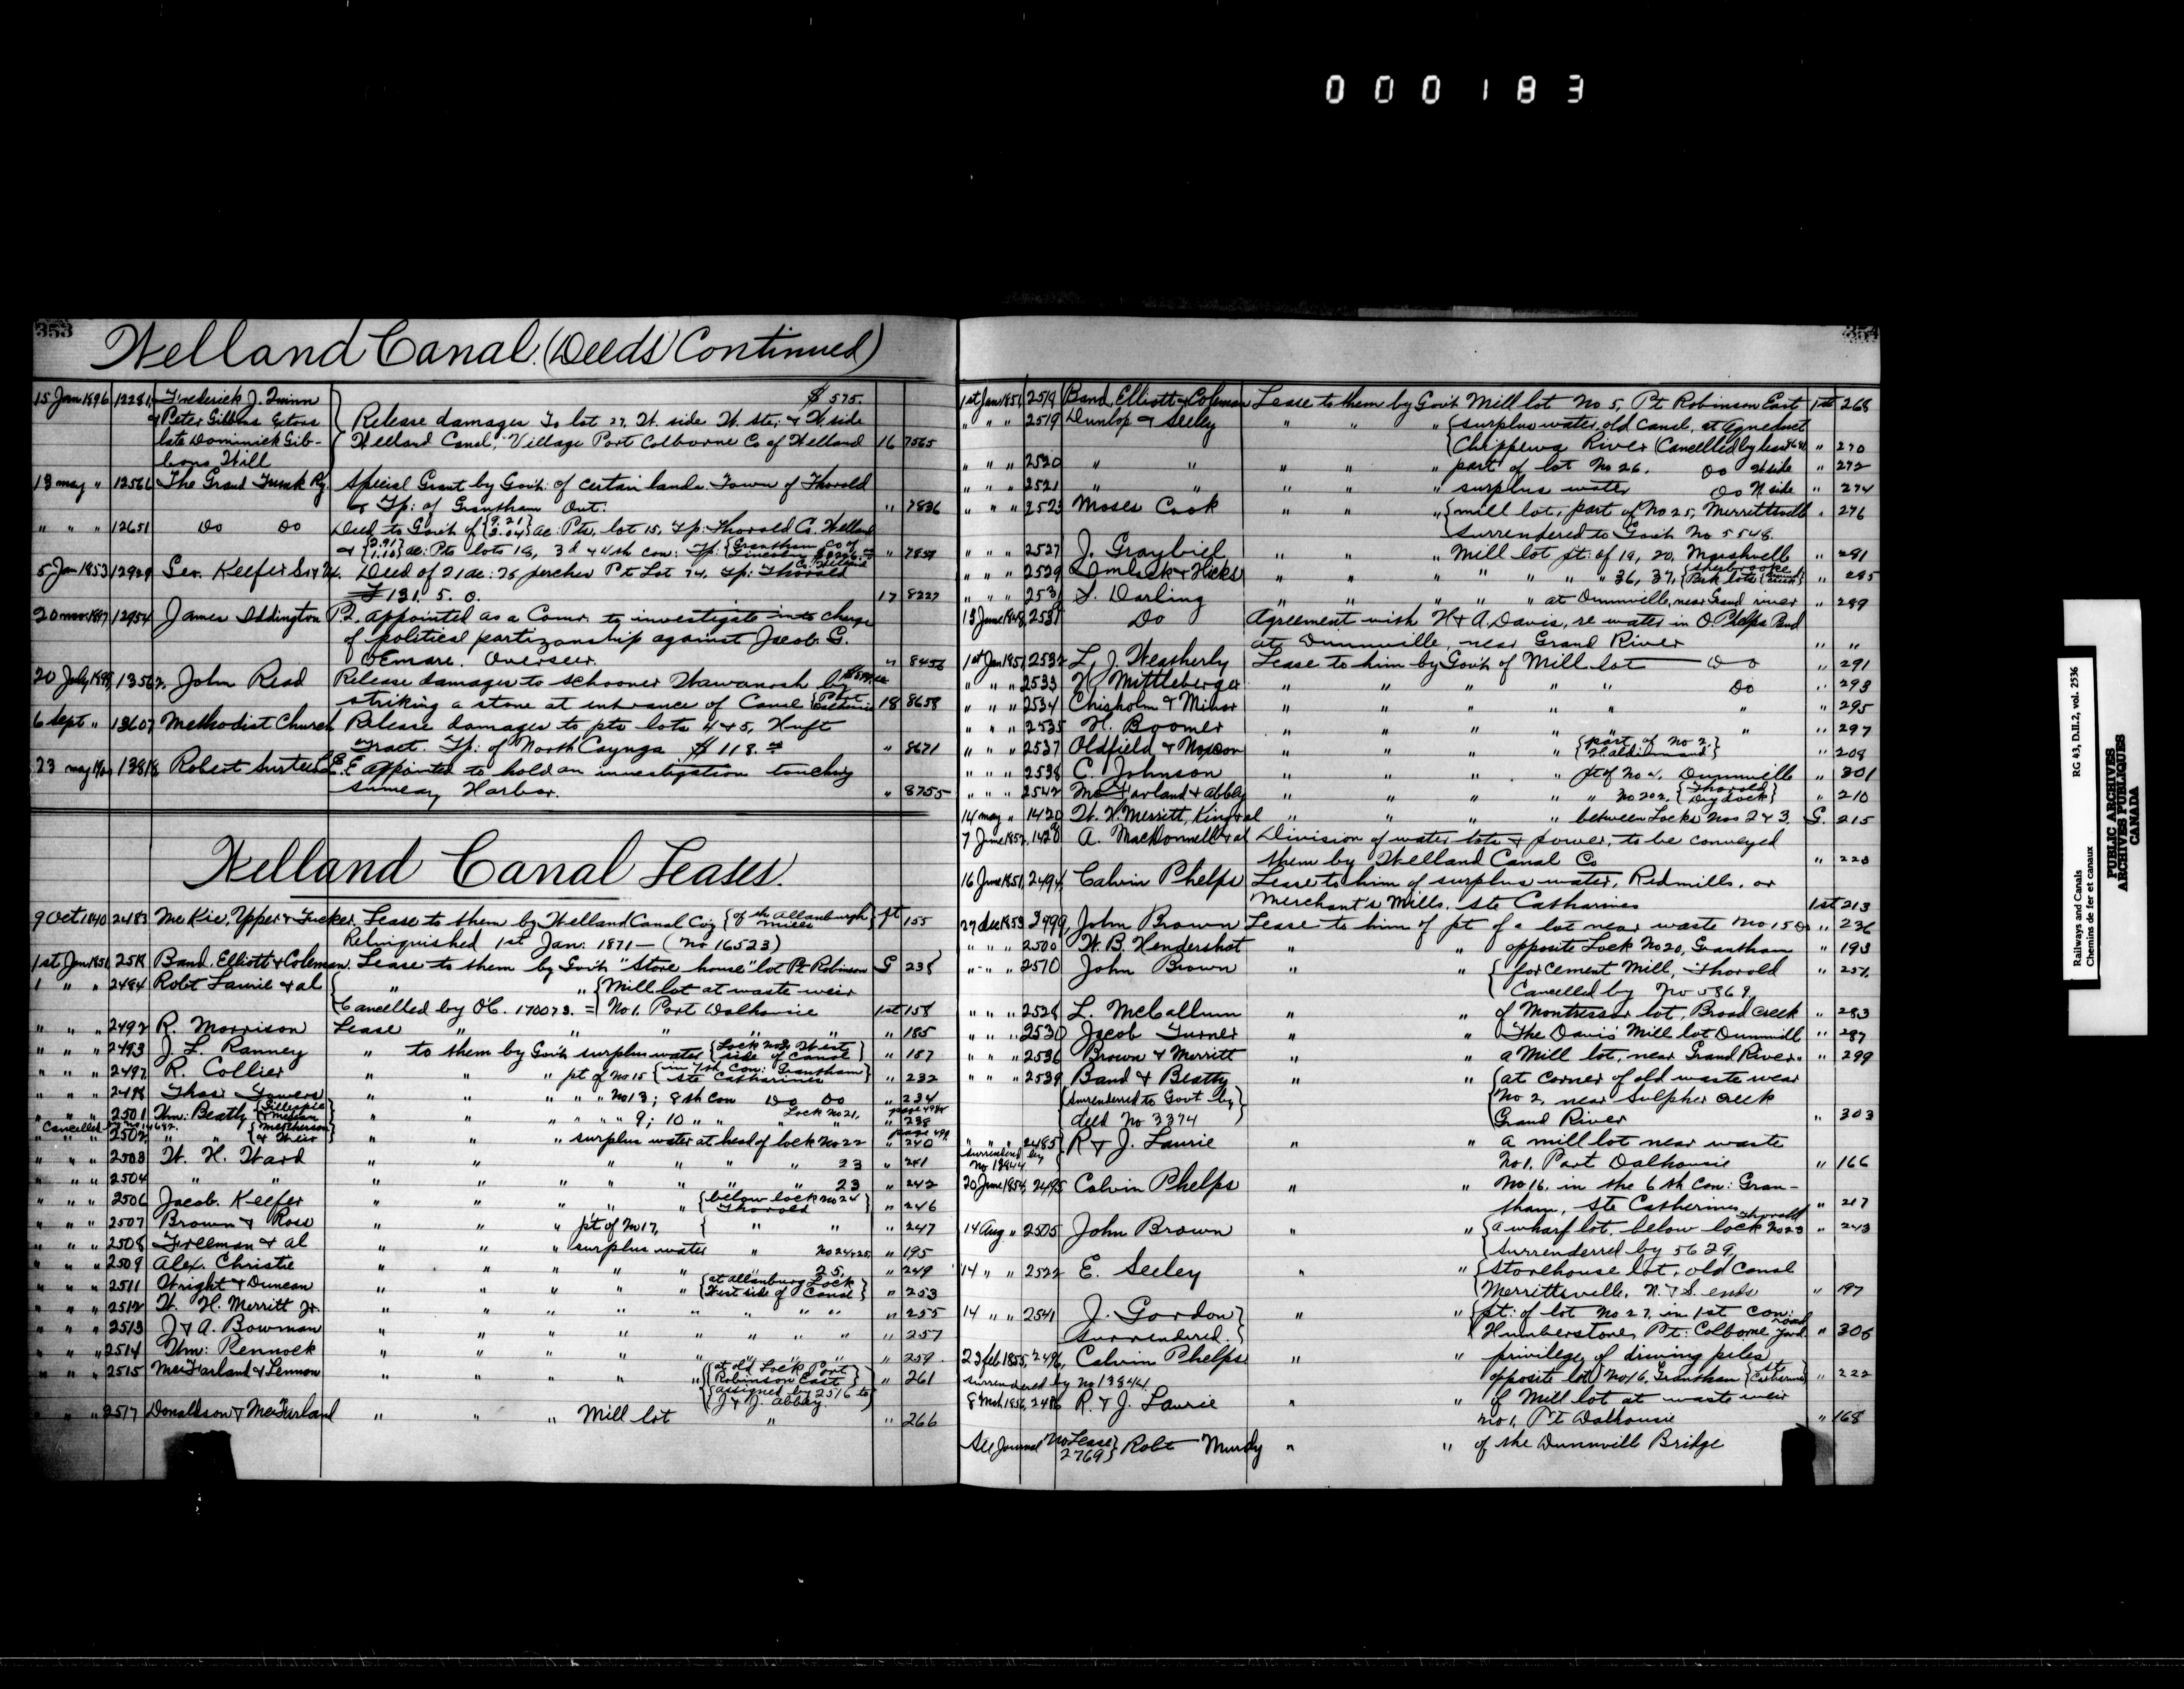 000183
353
Welland Canal. (Deeds Continued)
15 Jan 1896 12281 Frederick J. Quinn $575.
& Peter Gibbons Extors Release damages To lot 27, W. side W. str. & W. side
late Dominick Gib- Welland Canal, Village Port Colborne Co of Welland 16 7565
bons Will
13 may " 12561 The Grand Trunk Ry. Special Grant by Gov't: of certain lands Town of Thorold
& Tp: of Grantham Ont. " 7836
" " " 12651 Do Do Deed to Gov't of {9.21 3.04} ac: Pts. lot 15, Tp: Thorold Co. Welland
& {2.91 1.10} ac: Pts lots 18, 3d & 4th con: Tp: {Grantham Co of Lincoln " 7859
5 Jan 1853 12929 Geo. Keefer Sr & Deed of 21 ac: 26 perches Pt Lot 74, Tp: Thorold Co. Welland
£131. 5. 0. 17 8227
20 nov 1897 12954 James Addington P. appointed as a Comr. to investigate into charge
of political partizanship against Jacob G.
Demare. Overseer. " 8456
20 July 1899 13562 John Read Release damages to schooner Wawanosh by
striking a stone at entrance of Canal {Port Colborne 18 8658
6 Sept " 13607 Methodist Church Release damages to pts lots 4 & 5, Huff
Tract. Tp: of North Cayuga. $118. " 8671
23 may 13818 Robert Surtees C.E. appointed to hold an investigation touching
Harbor. " 8755
Welland Canal Leases.
9 Oct 1840 2483 McKie, Upper & Tucker. Lease to them by Welland Canal Coy {of the Allanburgh mills} 1st 155
Relinquished 1st Jan: 1871 — (no 16523)
1st Jan 1851 2518 Band, Elliott & Coleman. Lease to them by Gov't "Store house" lot Pt Robinson G 238
1 " " 2484 Robt Laurie & al " " {Mill lot at waste weir
{Cancelled by OC. 170073. = No 1. Port Dalhousie 1st 158
" " " 2492 R. Morrison Lease " " " " " " 185
" " " 2493 J. L. Ranney " to them by Gov't surplus water {Lock no 3, West side of Canal} " 187
" " " 2497 R. Collier " " " pt of No 15 {in 7th con: Grantham Ste Catharines} " 232
" " " 2498 Thos Towers " " " No 13; 8th con Do Do " 234
" " " 2501 Wm: Beatty {Gillespie & " " " 9; 10 " " Lock No 21, page 498 " 238
Cancelled
" " " 2502 " " {McPherson & Weir " " " surplus water at head of lock No 22 page 499 " 240
" " " 2503 W. H. Ward " " " " " " 23 " 241
" " " 2504 " " " " " " " " 23 " 242
" " " 2506 Jacob. Keefer " " " " " {below lock no 24 Thorold} " 246
" " " 2507 Brown & Ross " " " pt of No 17, { " " " 247
" " " 2508 Freeman & al " " " surplus water " No 24 & 25 " 195
" " " 2509 Alex. Christie " " " " " " 25, " 249
" " " 2511 Wright & Duncan " " " " " {at Allanburg Lock West side of Canal} " 253
" " " 2512 W. H. Merritt Jr. " " " " " " " " " 255
" " " 2513 J & A. Bowman " " " " " " " " " 257
" " " 2514 Wm: Pennock " " " " " " " " " 259
" " " 2515 McFarland & Lennon " " " " " {at old Lock Port Robinson East {assigned by 2516 to J & J. Abbey} " 261
" " " 2517 Donaldson & McFarland " " " Mill lot " " 266
354
1st Jan 1851 2518 Band, Elliott & Coleman Lease to them by Gov't Mill lot No 5, Pt Robinson East 1st 268
" " " 2519 Dunlop & Seeley " " " {surplus water, old Canal, at Aqueduct
{Chippewa River (Cancelled by lease 8681 " 270
" " " 2520 " " " " " part of lot No 26. Do W side " 272
" " " 2521 " " " " " surplus water Do N side " 274
" " " 2523 Moses Cook " " " {mill lot, part of No 25, Merrittsville " 276
{surrendered to Gov't No 5548.
" " " 2527 J. Graybiel " " " Mill lot pt: of 19, 20, Marshville " 281
" " " 2529 Imlack & Hicks " " " " " " 36, 37, {Sherbrooke Park lots " 285
" " " 253 S. Darling " " " " " at Dunnville, near Grand river " 289
13 June 1848 2531 Do Agreement with W & A. Davis, re water in O. Phelps Pond
at Dunnville near Grand River " "
1st Jan 1851 2532 L, J. Weatherly Lease to him by Gov't of Mill lot — Do " 291
" " " 2533 H Mittleberger " " " " " Do " 293
" " " 2534 Chisholm & Minor " " " " " " " 295
" " " 2535 H. Boomer " " " " " " " 297
" " " 2537 Oldfield & Noxon " " " " {part of No 2, Haldimand} " 208
" " " 2538 C. Johnson " " " " pt of No 4, Dunnville " 301
" " " 2542 McFarland & Abbey " " " " " No 202, {Thorold Dry dock} " 210
14 may " 1420 W. H. Merritt, King & al " " " " between Locks Nos 2 & 3. G. 215
7 June 1852, 1428 A. MacDonnell & al Division of water lots & power, to be conveyed
them by Welland Canal Co " 223
16 June 1851, 2494 Calvin Phelps Lease to him of surplus water, Redmills, or
Merchant's Mills. Ste Catharines 1st 213
27 dec 1853 2499, John Brown Lease to him of pt of a lot near waste No 15 " 236
" " " 2500 W. B. Hendershot " " opposite Lock No 20, Grantham " 193
" " " 2510 John Brown " " {for Cement Mill, Thorold " 251,
{Cancelled by No 5869,
" " " 2528 L. McCallum " " of Montressor lot, Broad Creek " 283
" " " 2530 Jacob Turner " " The Davis' Mill lot Dunnvill " 287
" " " 2536 Brown & Merritt " " a Mill lot, near Grand River. " 299
" " " 2539 Band & Beatty " " {at corner of old waste wear
{surrendered to Govt by} No 2, near Sulpher creek
{deed No 3374} Grand River " 303
" " " 2485 R & J. Laurie " " a mill lot near waste
surrendered by No 13844 No 1. Port Dalhousie " 166
20 June 1854, 2495 Calvin Phelps " " No 16. in the 6th Con: Gran-
tham, Ste Catherines " 217
14 Aug " 2505 John Brown " " {a wharf lot, below lock No 23 Thorold " 243
{surrenderred by 5629,
14 " " 2522 E. Seeley " " {Storehouse lot, old Canal
{Merrittsville, N. & S. ends " 197
14 " " 2541 J. Gordon} " " {pt: of lot No 27, in 1st con:
surrendered.} {Humberstone, Pt: Colborne road " 306
23 feb 1855, 2496, Calvin Phelps " " privilege of driving piles
surrendered by No 13844. opposite lot No 16, Grantham {Ste Catharines} " 222
8 Mch 1856, 2486 R. & J. Laurie " " of Mill lot at waste weir
No 1, Pt Dalhousie " 168
See Journal No Lease 2769} Robt Mundy " " of the Dunnvill Bridge
Railways and Canals
Chemins de fer et canaux
RG 43, D.II.2, vol. 2536
PUBLIC ARCHIVES
ARCHIVES PUBLIQUES
CANADA